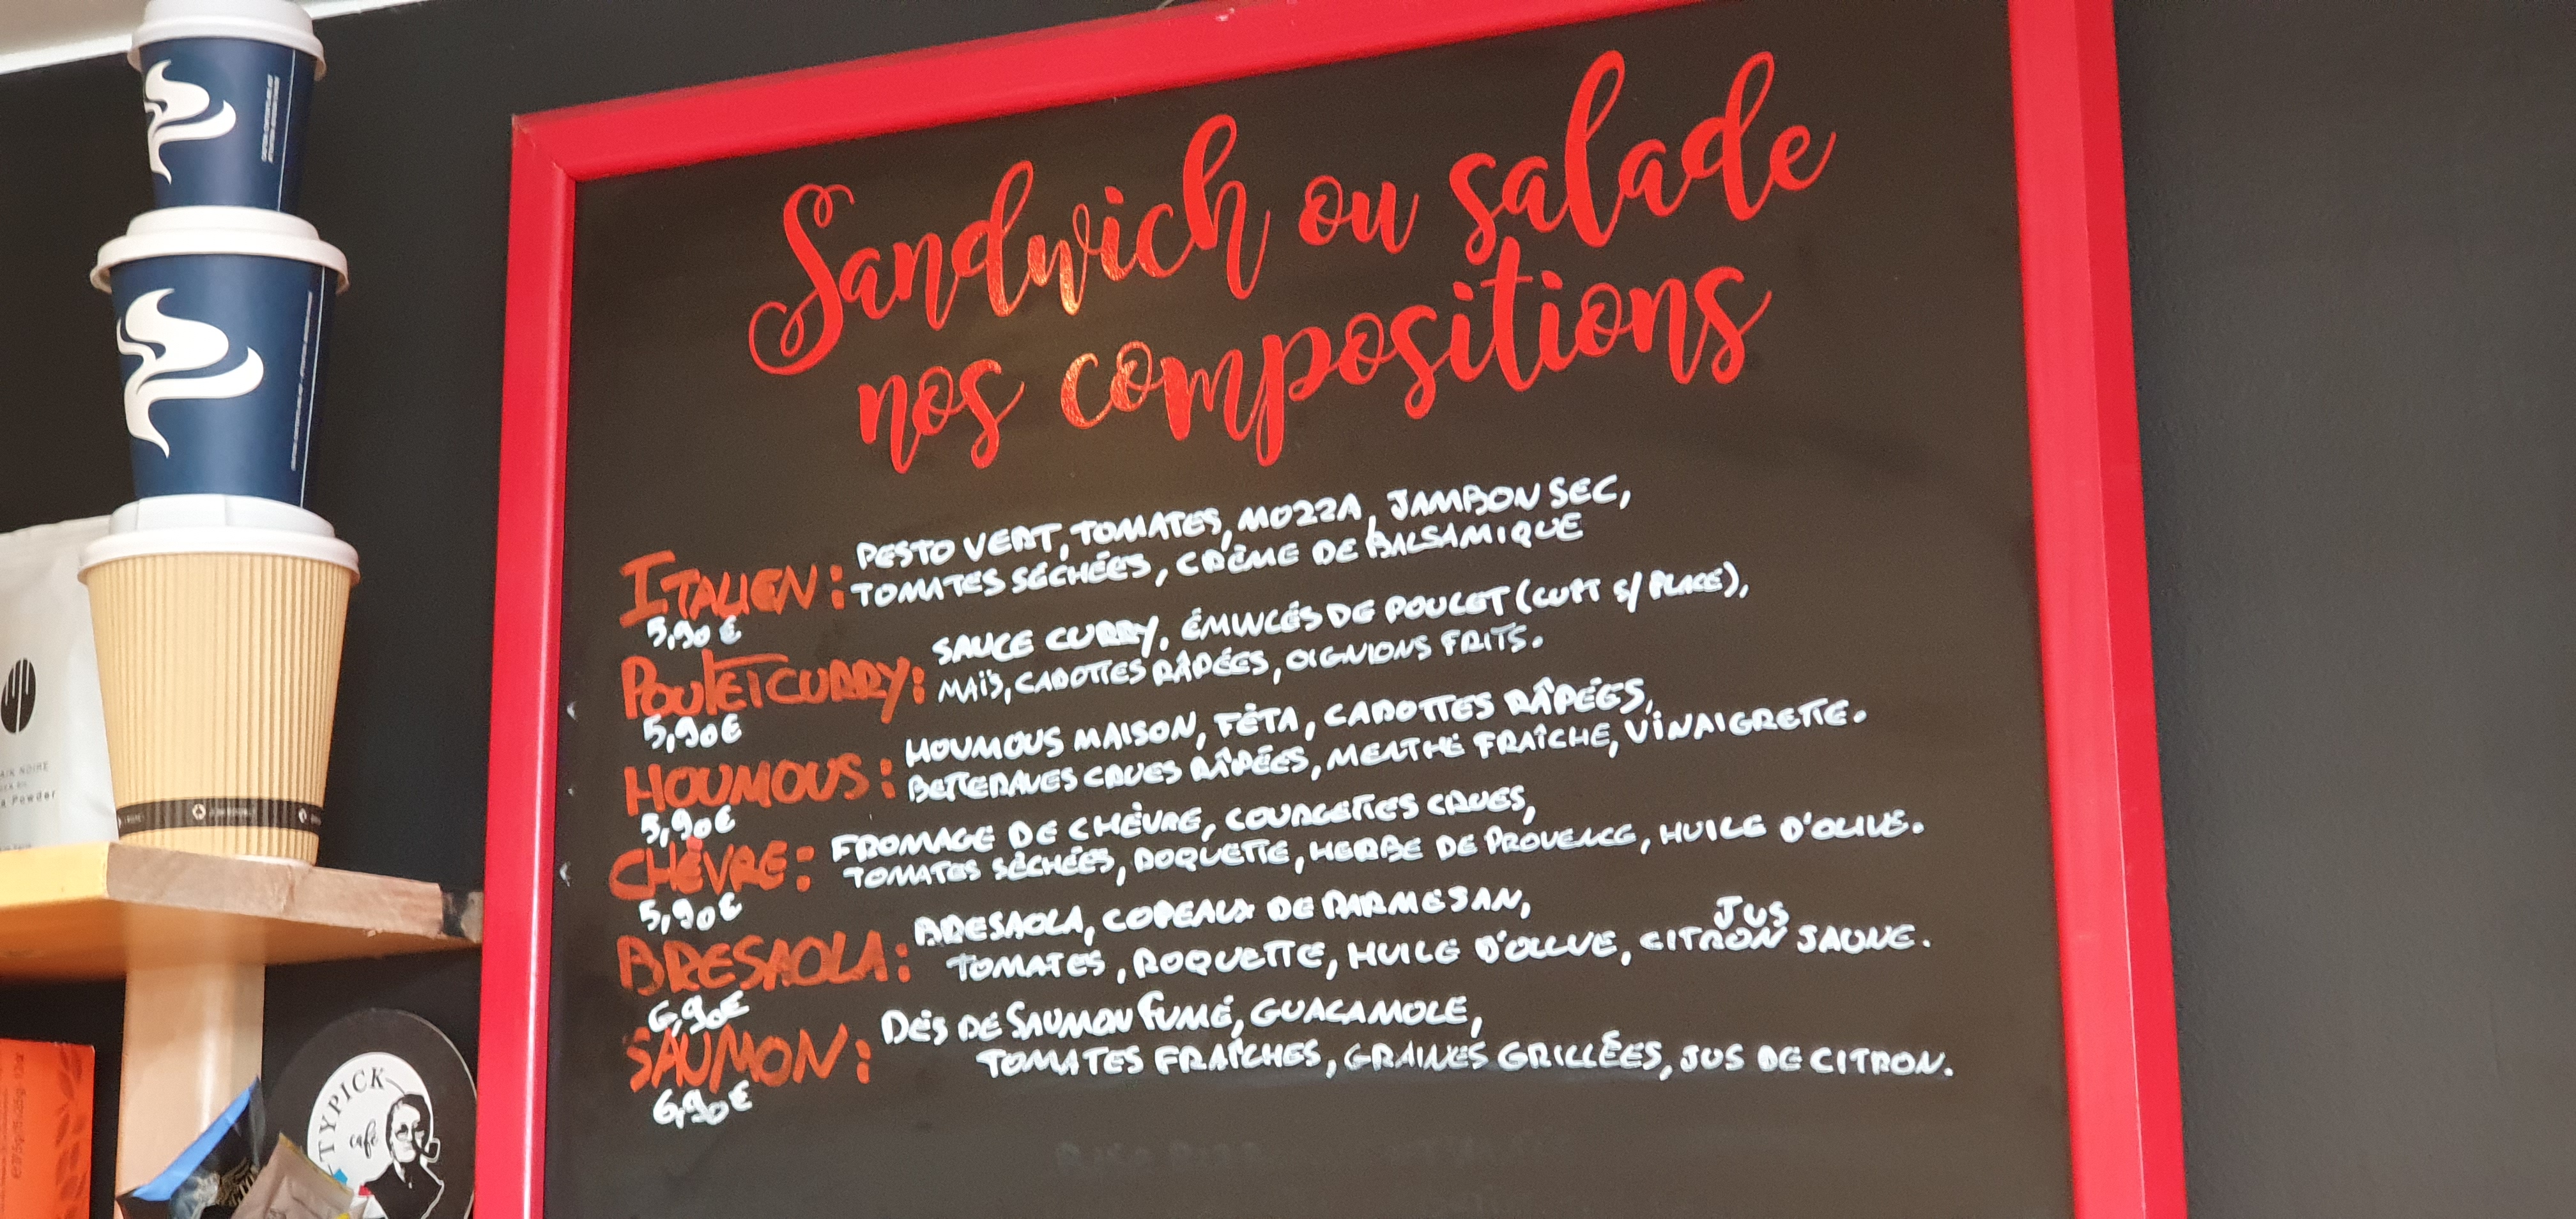 Sandwich ou salade
nos compositions
ITALIEN : PESTO VERT, TOMATES, MOZZA, JAMBON SEC,
TOMATES SÉCHÉES, CRÈME DE BALSAMIQUE
5,90€
POULET CURRY : SAUCE CURRY, ÉMINCÉS DE POULET (CUIT S/PLACE),
MAÏS, CAROTTES RÂPÉES, OIGNIONS FRITS.
5,90€
HOUMOUS : HOUMOUS MAISON, FÈTA, CAROTTES RÂPÉES,
BETTERAVES CRUES RÂPÉES, MENTHE FRAÎCHE, VINAIGRETTE.
5,90€
CHÈVRE : FROMAGE DE CHÈVRE, COURGETTES CRUES,
TOMATES SÈCHÉES, ROQUETTE, HERBE DE PROVENCE, HUILE D'OLIVE.
5,90€
BRESAOLA : BRESAOLA, COPEAUX DE PARMESAN,
TOMATES, ROQUETTE, HUILE D'OLIVE, JUS CITRON JAUNE.
6,90€
SAUMON : DÉS DE SAUMON FUMÉ, GUACAMOLE,
TOMATES FRAÎCHES, GRAINES GRILLÉES, JUS DE CITRON.
6,90€
Powder
TYPICK
café